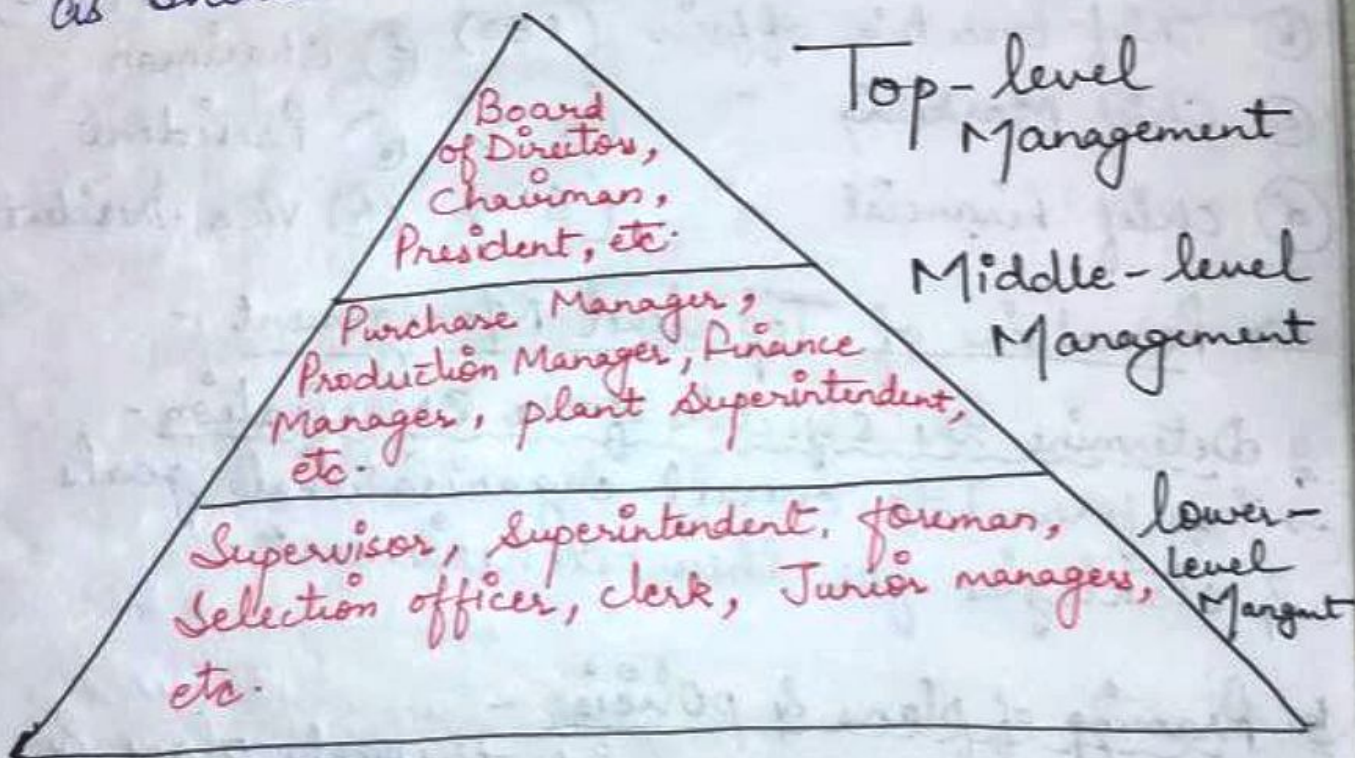 as
Board
of Directors,
Chairman,
President, etc.
Top-level
Management
Purchase Manager,
Production Manager, finance
Manager, plant Superintendent,
etc.
Middle-level
Management
Supervisor, Superintendent, foreman,
Selection officer, clerk, Junior managers,
etc.
lower-
level
Mangmt